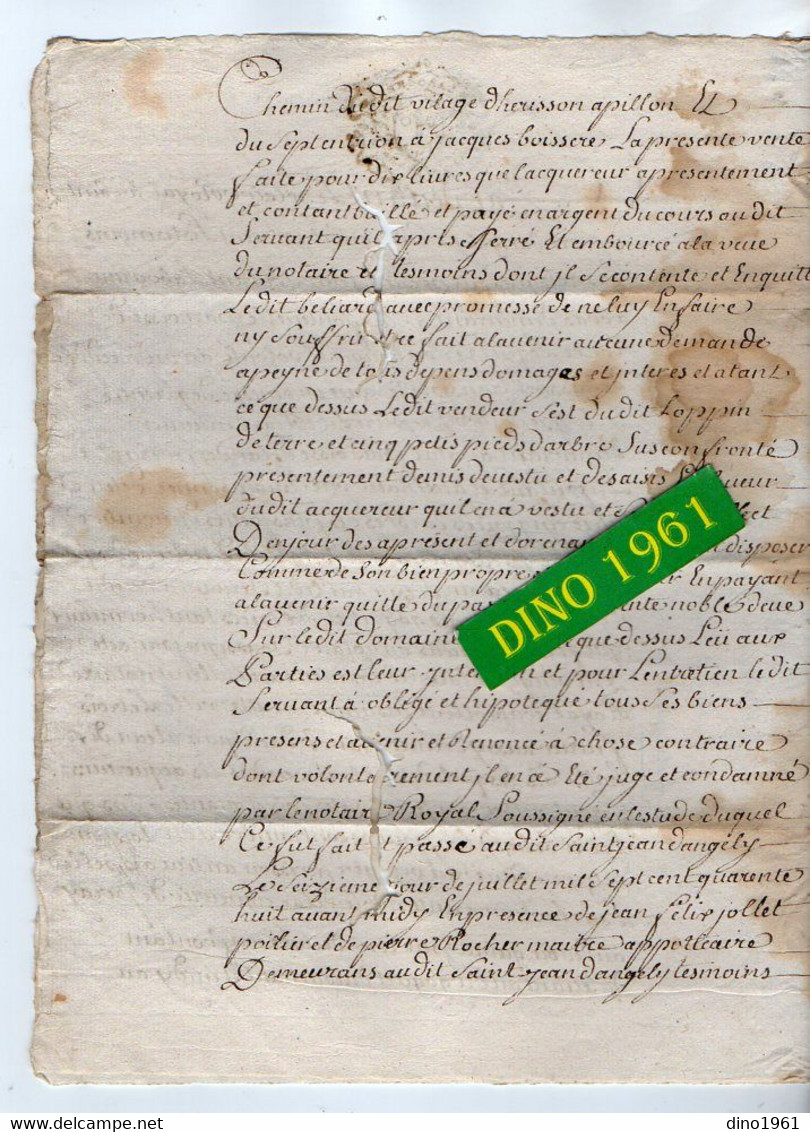 Chemin dudit vilage d'housson apillon Et
du Septentrion à jacques boissere La presente vente
faite pour dix livres que lacquereur apresentement
et contant baillé et payé en argent du cours au dit
Servant quil apris Serré Et embourcé a la veüe
du notaire et tesmoins dont jl Se contente et Enquitte
Ledit beliard avec promesse de ne luy En faire
ny Souffrir et ce fait alavenir aucune demande
apeyne de tous depens domages et jnteres et atant
ce que dessus Ledit vendeur s'est du dit Loppin
de terre et cinq petis pieds darbre Sus confronté
presentement demis devestu et desaisis
dudit acquereur quil en à vestu et
Den jouir des apresent et doren disposer
Comme de Son bien propre En payant
alavenir quitte du pas noble deüe
Sur ledit domaine que dessus Leü aux
Parties est leur jntention et pour Lentretien ledit
Servant à oblégé et hipotequé tous Ses biens
presens et avenir et Renoncé à chose contraire
dont volontairement jl en à Eté jugé et condamné
par le notaire Royal Soussigné en lestude duquel
Ce fut fait et passé audit Saint jean dangely
Le Seizieme jour de juillet mil Sept cent quarente
huit avant midy En presence de jean felix jollet
poilier et de pierre Rocher maitre appoticaire
Demeurans audit Saint jean dangely tesmoins
DINO 1961
dino1961